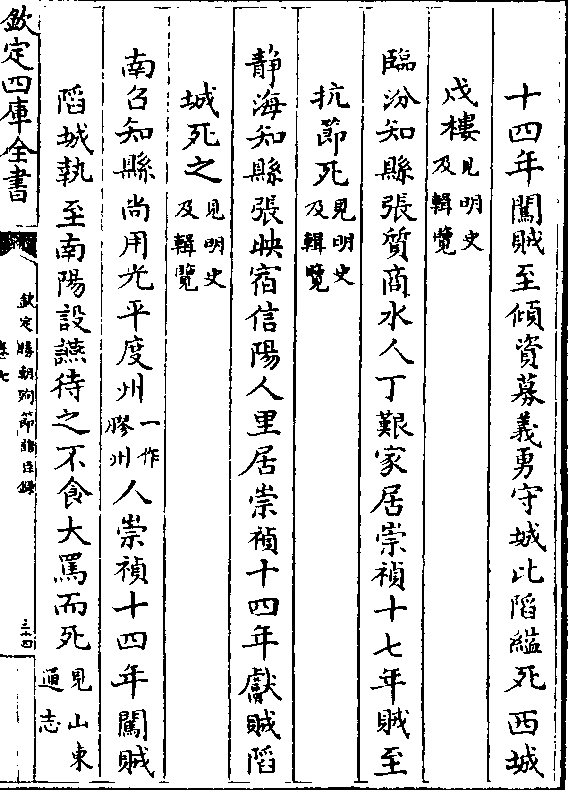 十四年闖賊至傾資募義勇守城比䧟縊死西城
戍樓見明史及輯覽
臨汾知縣張質商水人丁艱家居崇禎十七年賊至
抗節死見明史及輯覽
静海知縣張映宿信陽人里居崇禎十四年獻賊䧟
城死之見明史及輯覽
南召知縣尚用光平度州一作膠州人崇禎十四年闖賊
䧟城執至南陽設讌待之不食大罵而死見山東通志
欽定四庫全書
欽定勝朝殉節諸臣録
卷七
三十四